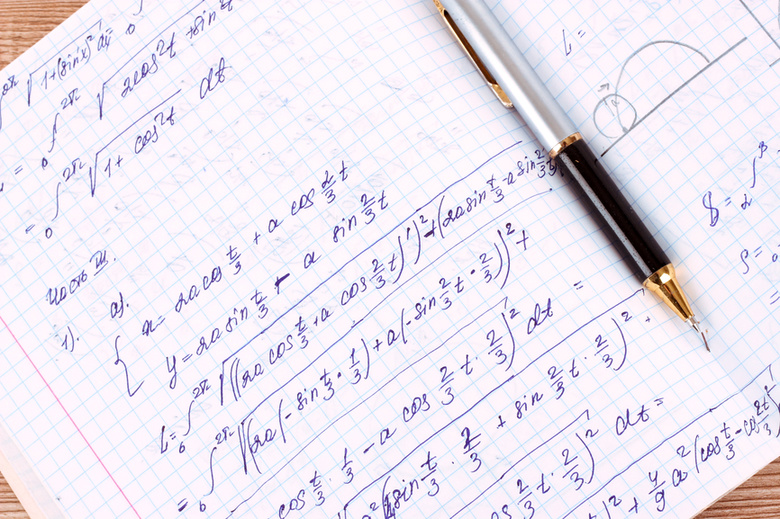 ∫₀^{2π} √(1+(sin x)²) dx
= ∫₀^{2π} √(2cos²t + sin²t
= ∫₀^{2π} √(1 + cos²t) dt
Часть III.
1). a).
{ x = 2a cos t/3 + a cos 2/3 t
y = 2a sin t/3 - a sin 2/3 t
L = ∫₀^{2π} √(((2a cos t/3 + a cos 2/3 t)')² + (2a sin t/3 - a sin 2/3 t
= ∫₀^{2π} √((2a(-sin t/3 · 1/3) + a(-sin 2/3 t · 2/3))² +
cos t/3 · 1/3 - a cos 2/3 t · 2/3)² dt =
(sin t/3 · 2/3 + sin 2/3 t · 2/3)² +
cos 2/3 t · 2/3)² dt =
)² + 4/9 a² (cos t/3 - cos 2t/3)²
L =
S = ∫
ρ =